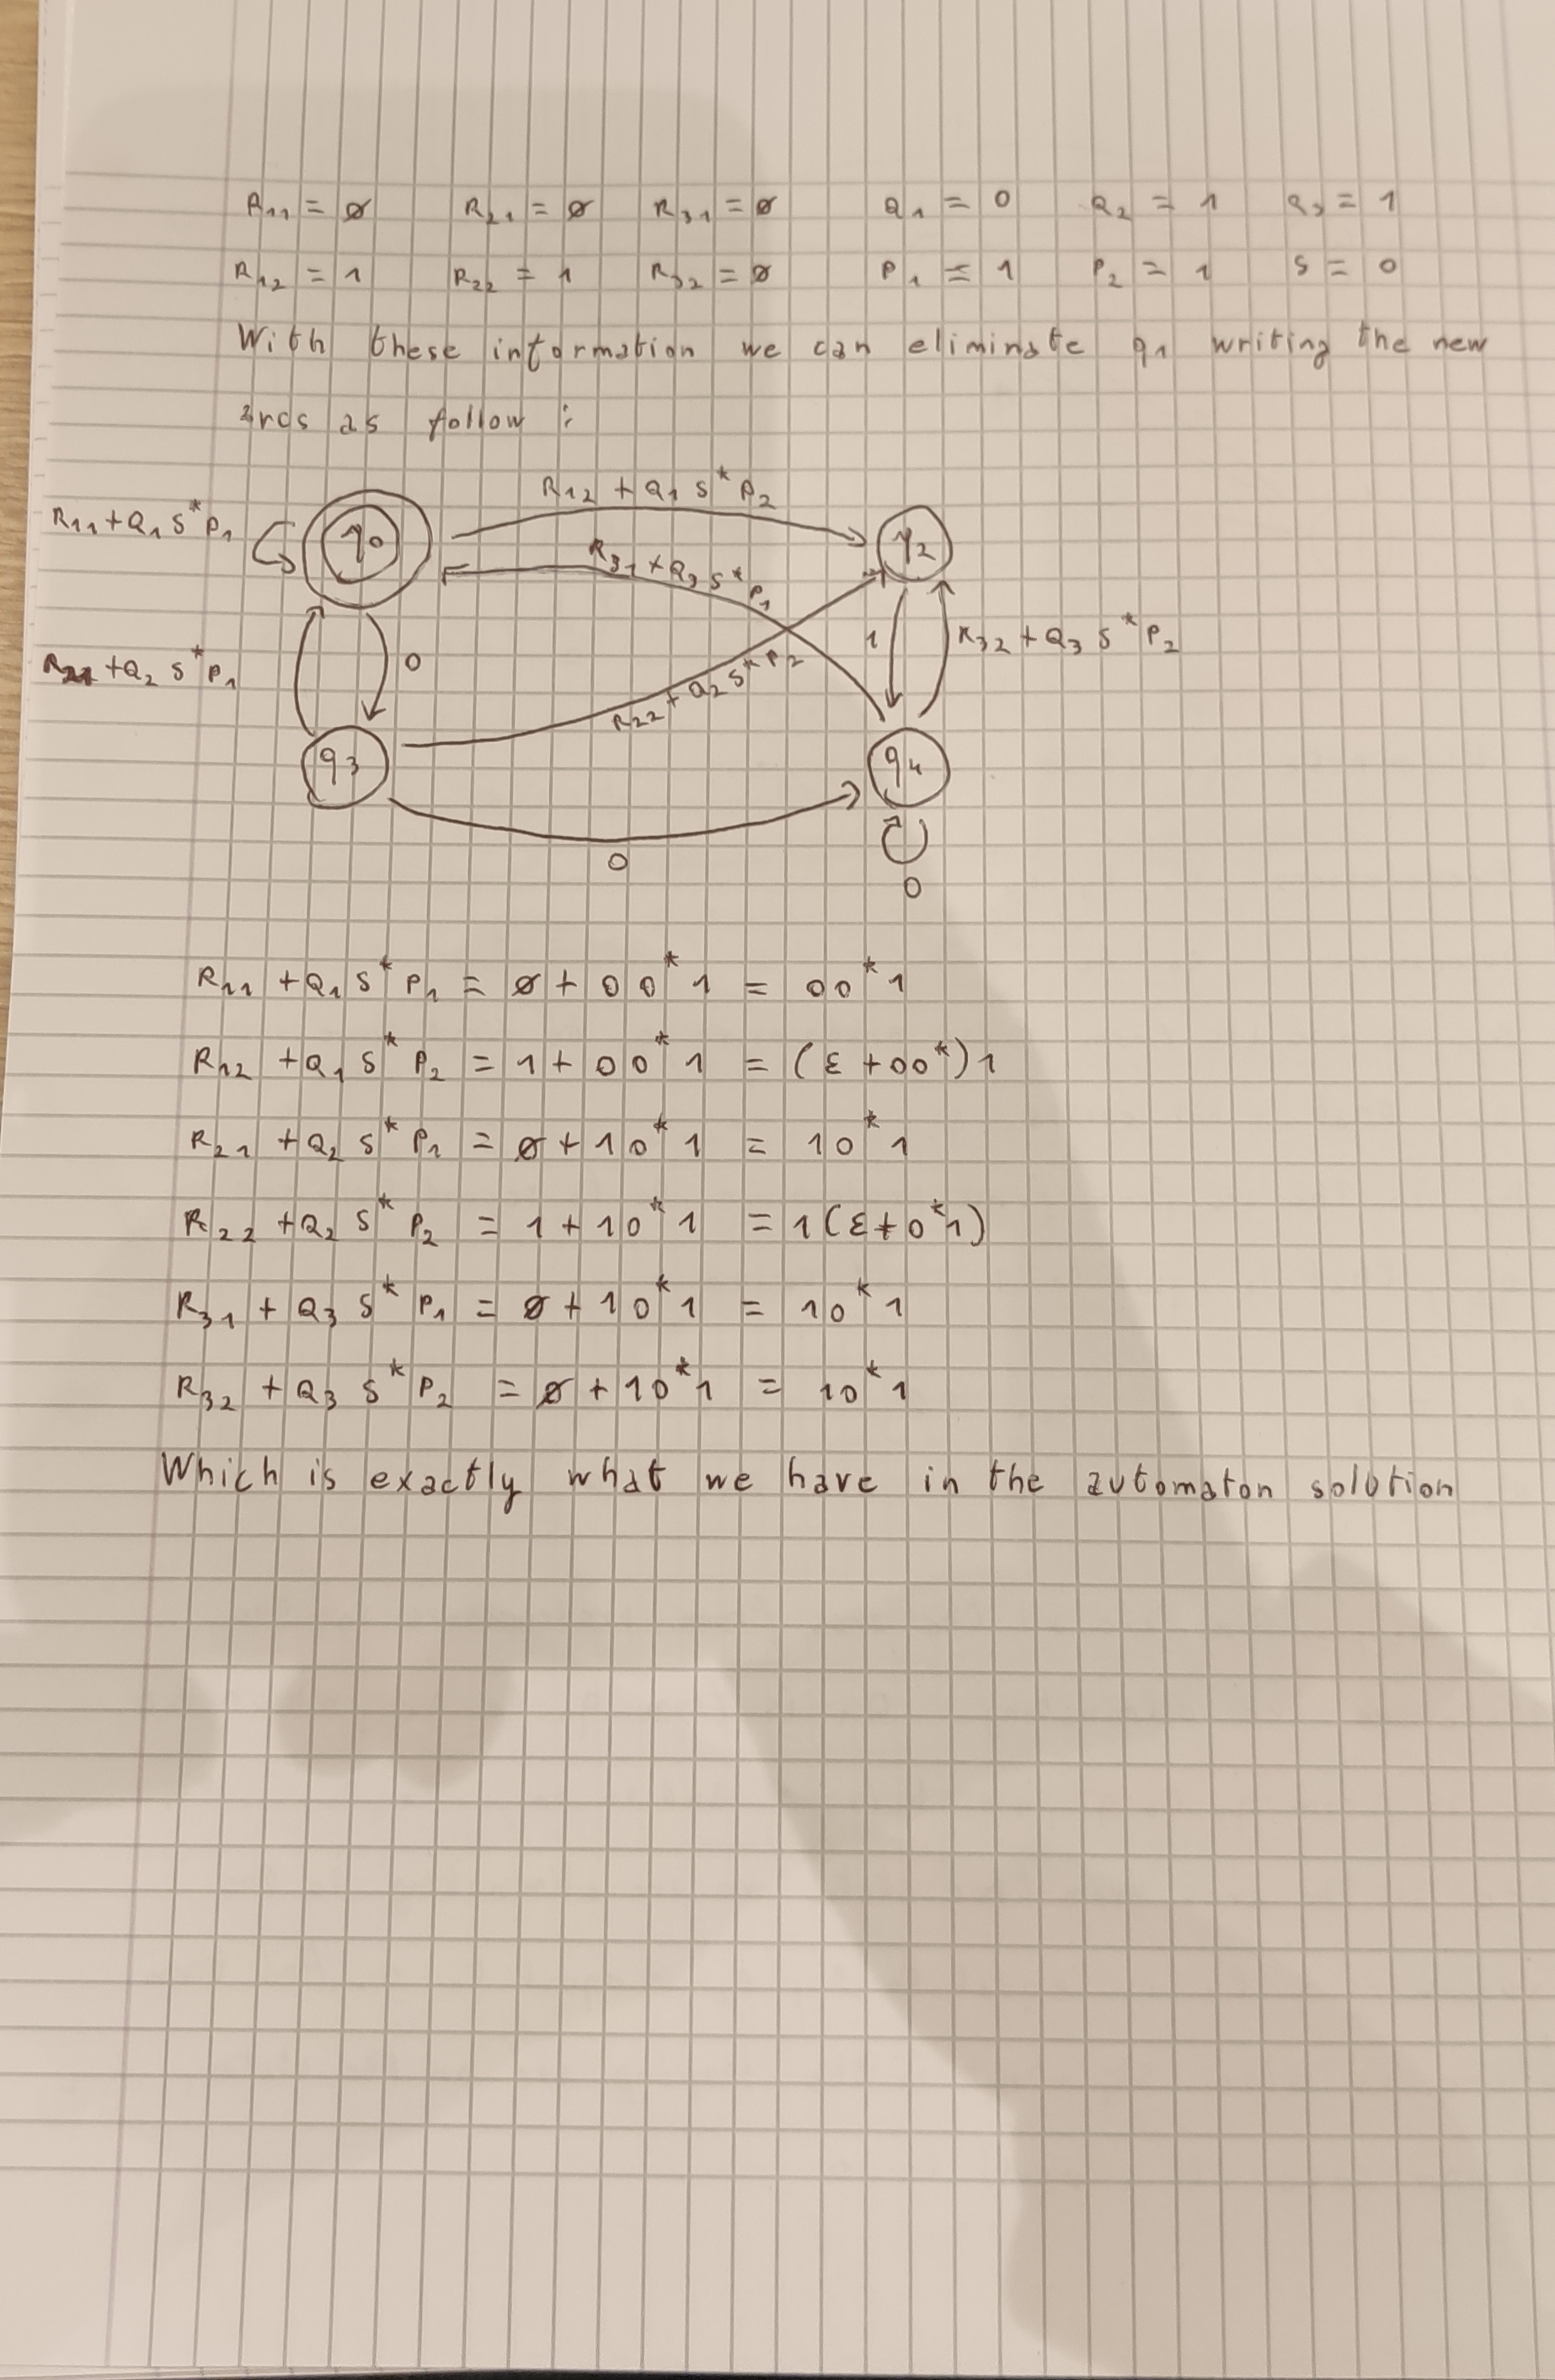 R₁₁ = ∅ R₂₁ = ∅ R₃₁ = ∅ Q₁ = 0 Q₂ = 1 Q₃ = 1
R₁₂ = 1 R₂₂ = 1 R₃₂ = ∅ P₁ = 1 P₂ = 1 S = 0
With these information we can eliminate q₁ writing the new
arcs as follow :
R₁₂ + Q₁ S* P₂
R₁₁ + Q₁ S* P₁
q₀
q₂
R₃₁ + Q₃ S* P₁
R₂₁ + Q₂ S* P₁
0
1
R₃₂ + Q₃ S* P₂
R₂₂ + Q₂ S* P₂
q₃
q₄
0
0
R₁₁ + Q₁ S* P₁ = ∅ + 00* 1 = 00* 1
R₁₂ + Q₁ S* P₂ = 1 + 00* 1 = (ε + 00*) 1
R₂₁ + Q₂ S* P₁ = ∅ + 10* 1 = 10* 1
R₂₂ + Q₂ S* P₂ = 1 + 10* 1 = 1 (ε + 0* 1)
R₃₁ + Q₃ S* P₁ = ∅ + 10* 1 = 10* 1
R₃₂ + Q₃ S* P₂ = ∅ + 10* 1 = 10* 1
Which is exactly what we have in the automaton solution